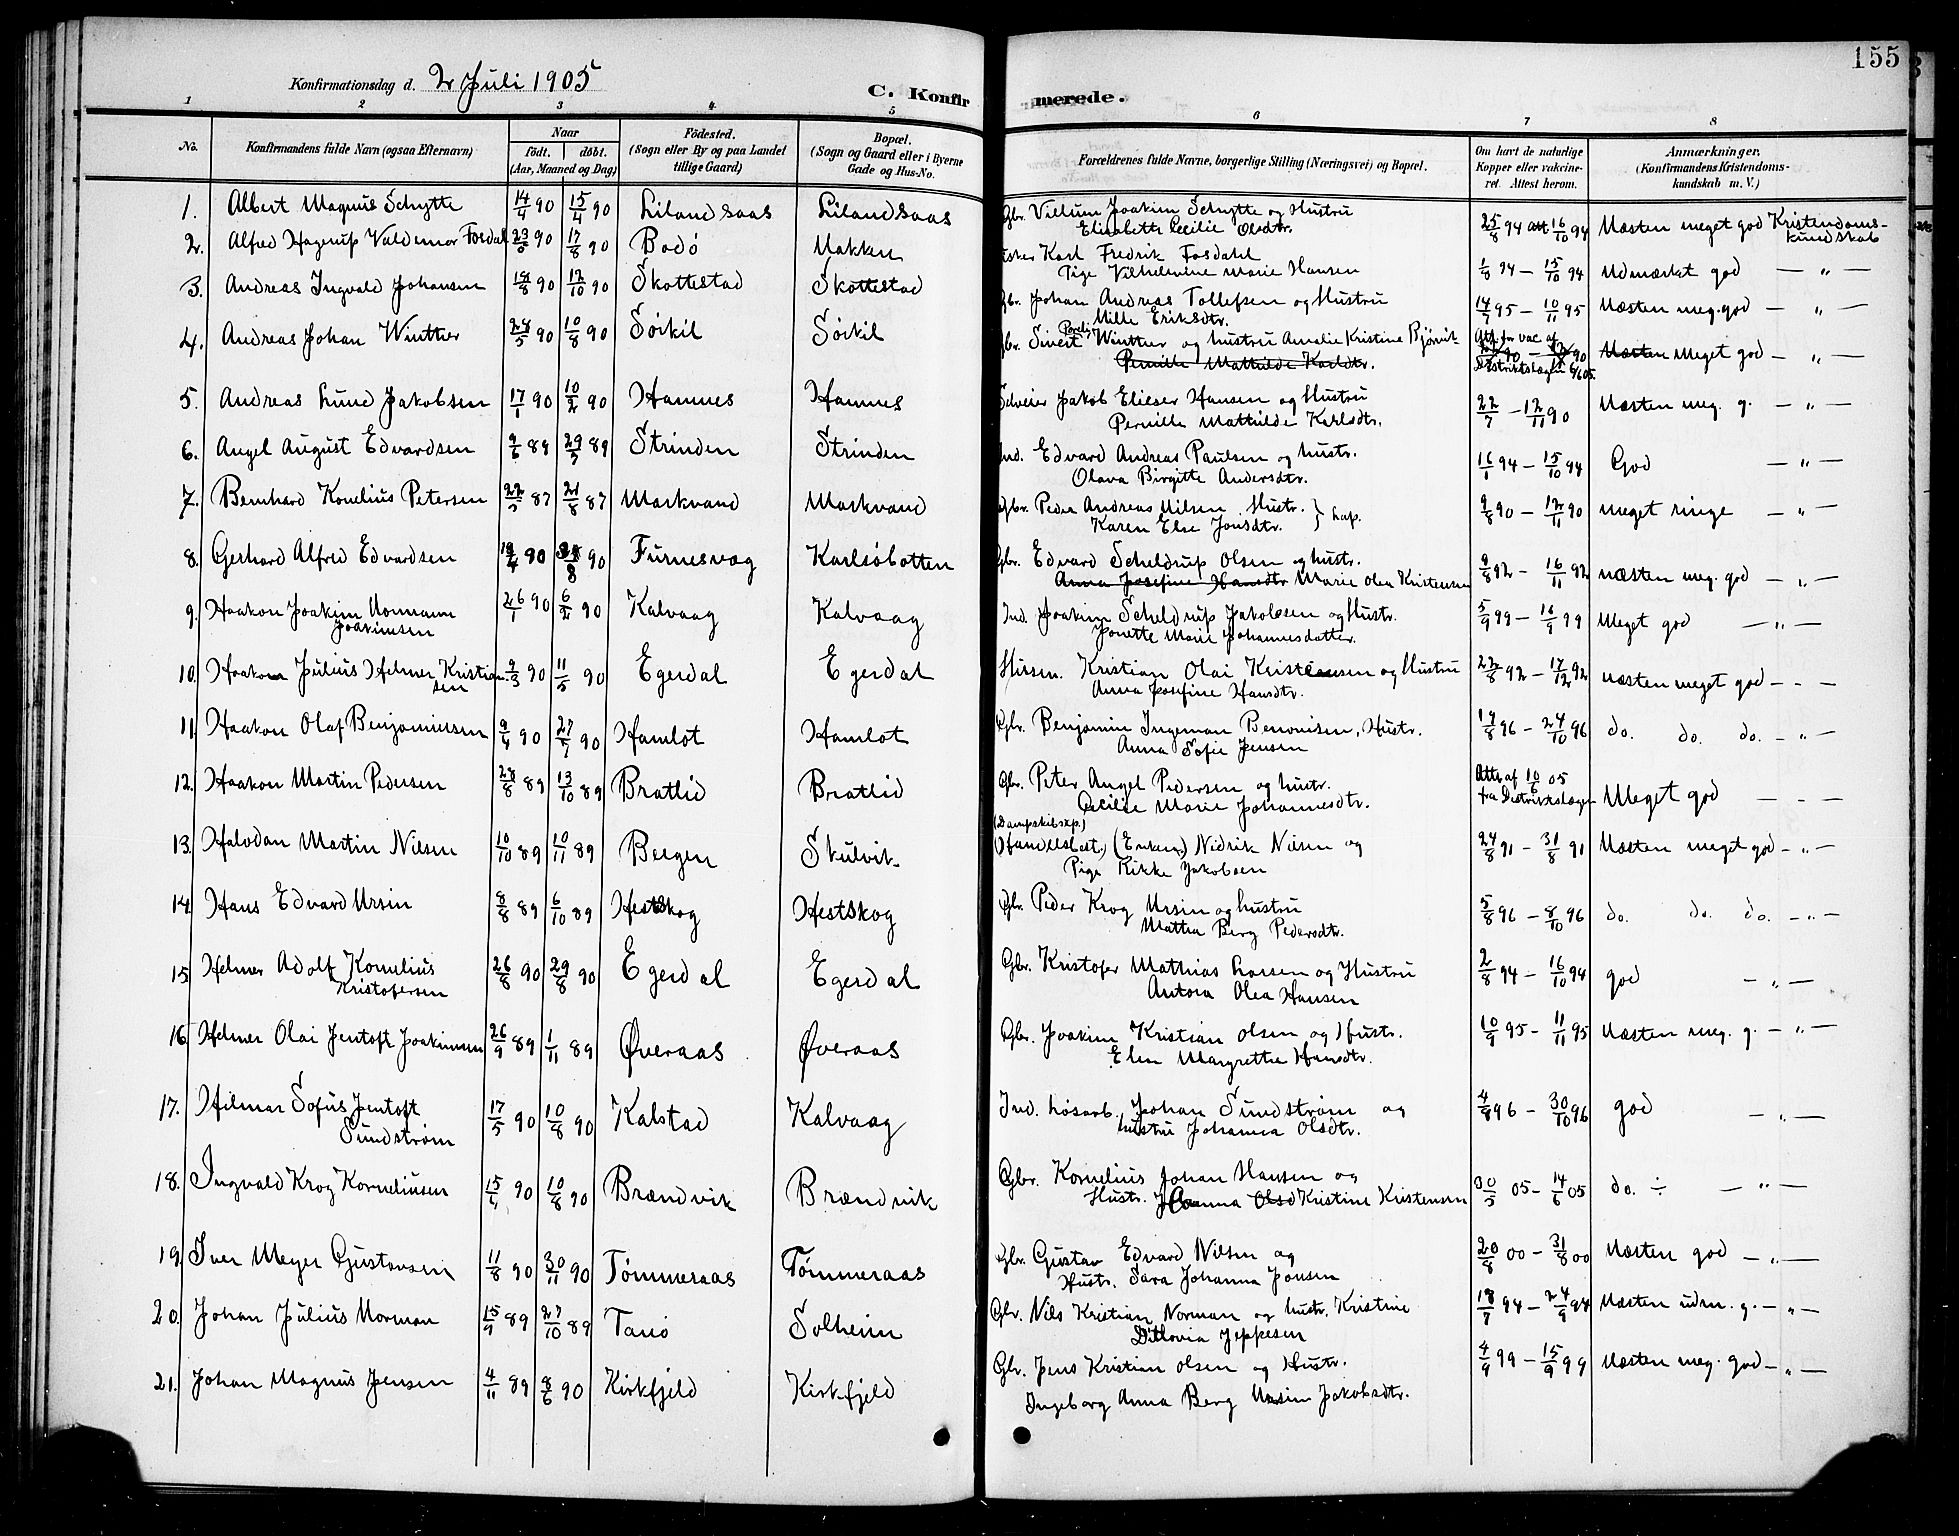 155
Konfirmationsdag d. 2 Juli 1905
C. Konfir merede.
1 2 3 4 5 6 7 8
No. Konfirmandens fulde Navn (ogsaa Efternavn) Naar født. døbt. (Aar, Maaned og Dag) Födested. (Sogn eller By og paa Landet tillige Gaard) Bopæl. (Sogn og Gaard eller i Byerne Gade og Hus-No. Forældrenes fulde Navne, borgerlige Stilling (Næringsvei) og Bopæl. Om havt de naturlige Kopper eller vakcineret. Attest herom. Anmærkninger. (Konfirmandens Kristendomskundskab m. V.)
1. Albert Magnus Schytte 14/4 90 15/4 90 Lilandsaas Lilandsaas Gbr. Villum Joakim Schytte og Hustru 25/8 94 att 16/10 94 Næsten meget god Kristendoms-
Elisabeth Cecilie Olsdtr. kundskab
2. Alfred Hagerup Valdemar Fosdal 23/5 90 17/8 90 Bodö Makken Karl Fredrik Fosdahl
Pige Vilhelmine Marie Hansen 1/8 94 – 15/10 94 Udmærket god — „ —
3. Andreas Ingvald Johansen 18/8 90 12/10 90 Skottestad Skottestad Gbr. Johan Andreas Tollefsen og Hustru 14/7 95 – 10/11 95 Næsten meg. god — „ —
Mille Eriksdtr.
4. Andreas Johan Winther 28/5 90 10/8 90 Sörkil Sörkil Gbr. Sivert Winther og hustru Amalie Kristine Att. for vac. af
Pernille Mathilde Karldtr. Distriktslægen 6/6 05. Næsten Meget god — „ —
5. Andreas Lund Jakobsen 17/1 90 10/2 90 Hamnes Hamnes Selveier Jakob Elieser Hansen og Hustru 22/7 – 12/11 90 Næsten meg. g. — „ —
Pernille Mathilde Karlsdtr.
6. Angel August Edvardsen 9/6 89 29/7 89 Strinden Strinden Ind. Edvard Andreas Paulsen og hustr. 16/1 94 – 15/10 94 God — „ —
Olava Birgitte Andersdtr.
7. Bernhard Kornelius Petersen 22/5 87 21/8 87 Markvand Markvand Gbr. Peder Andreas Nilsen Hustr. 9/8 90 – 12/11 90 meget ringe — „ —
Karen Else Jonsdtr. } Lap.
8. Gerhard Alfred Edvardsen 19/4 90 90 Furnesvaag Karlsöbotten Gbr. Edvard Scheldrup Olsen og hustr. 9/8 92 – 16/11 92 næsten meg. god — „ —
Anna Josefine Hansdtr Marie Olea Kristensen
9. Haakon Joakim Normann 26/1 90 6/2 90 Kalvaag Kalvaag Ind. Joakim Scheldrup Jakobsen og Hustr. 5/9 99 – 16/9 99 Meget god — „ —
Joakimsen Jonette Marie Johannesdatter.
10. Haakon Julius Helmer Kristian- 9/3 90 11/5 90 Egerdal Egerdal Kristian Olai Kristensen og Hustru 22/8 92 – 17/12 92 næsten meget god — - —
sen Anna Josefine Hansdtr.
11. Haakon Olaf Benjaminsen 9/4 90 27/7 90 Hamlot Hamlot Gbr. Benjamin Ingeman Benonisen, Hustr. 19/8 96 – 24/10 96 do. do. do. — „ —
Anna Sofie Jensen
12. Haakon Martin Pedersen 28/8 89 13/10 89 Bratlid Bratlid Gbr. Peter Angel Pedersen og hustr. Att. af 10/6 05
Cecilie Marie Johannesdtr. fra Distriktslægen Meget god — - —
(Dampskibsexp.)
13. Halvdan Martin Nilsen 10/10 89 10/11 89 Bergen Skulvik (Handelsbest.) (Enkem.) Nidrik Nilsen og 24/8 91 – 31/8 91 Næsten meget god — „ —
Pige Rikke Jakobsen
14. Hans Edvard Ursin 8/8 89 6/10 89 Hestskog Hestskog Gbr. Peder Krog Ursin og hustru 5/8 96 – 8/10 96 do. do. do. — „ —
Mathea Berg Pedersdtr.
15. Helmer Adolf Kornelius 26/8 90 29/8 90 Egerdal Egerdal Gbr. Kristofer Mathias Larsen og Hustru 2/8 94 – 16/10 94 god — „ —
Kristofersen Antora Olea Hansen
16. Helmer Olai Jentoft Joakimsen 26/9 89 1/11 89 Øveraas Øveraas Gbr. Joakim Kristian Olsen og Hustr. 10/9 95 – 11/11 95 Næsten meg. g. — „ —
Elen Margrethe Hansdtr.
17. Hilmar Sofus Jentoft 17/5 90 10/8 90 Kalstad Kalvaag Ind. løsarb. Johan Sundstrøm og 4/8 96 – 30/10 96 god — „ —
Sundstrøm hustru Johanna Olsdtr.
18. Ingvald Krog Korneliusen 15/4 90 10/8 90 Brændvik Brændvik Gbr. Kornelius Johan Hansen og 30/5 05 – 14/6 05 do. ÷ — „ —
Hustr. Anna Olsd Kristine Kristensen
19. Iver Meyer Gustavsen 11/8 90 30/11 90 Tømmeraas Tømmeraas Gbr. Gustav Edvard Nilsen og 20/8 00 – 31/8 00 Næsten god — „ —
Hustr. Sara Johanna Jonsen
20. Johan Julius Norman 15/9 89 27/10 89 Tanö Solheim Gbr. Nils Kristian Norman og hustr. Kristine 18/7 94 – 24/9 94 Næsten udm. g. — „ —
Ditlovia Jeppesen
21. Johan Magnus Jensen 4/11 89 8/6 90 Kirkfjeld Kirkfjeld Gbr. Jens Kristian Olsen og Hustr. 4/9 99 – 15/9 99 Næsten meg. god — „ —
Ingeborg Anna Berg Ursin Jakobsdtr.